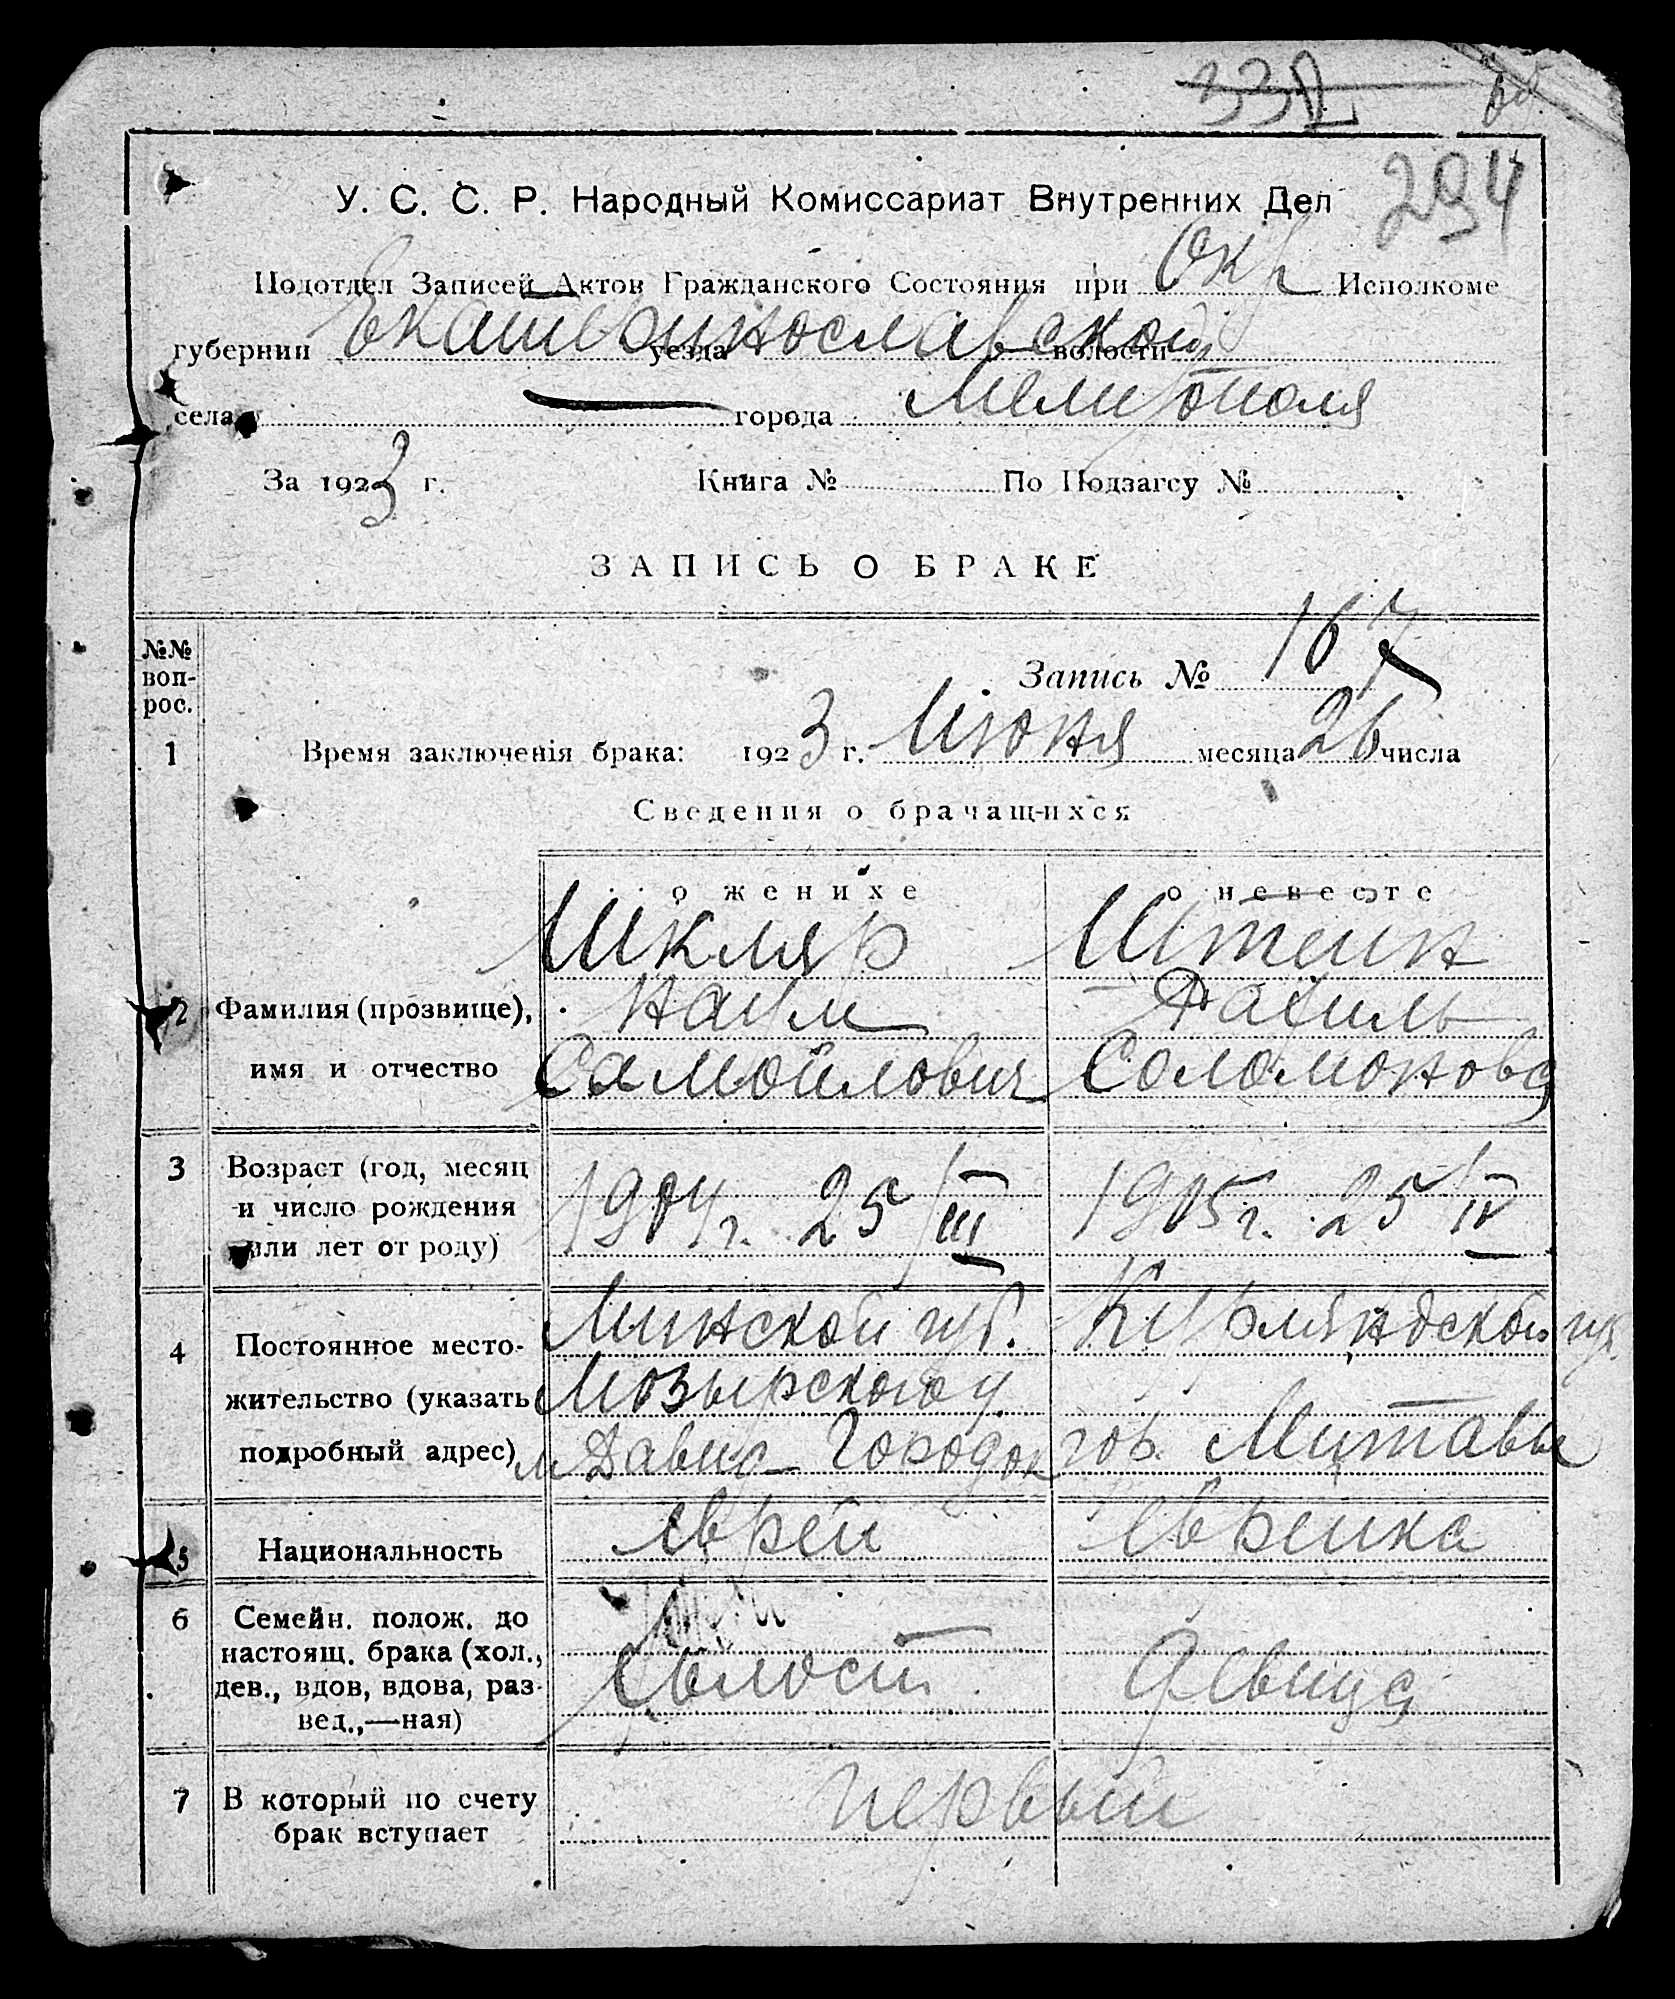 332
294
У. С. С. Р. Народный Комиссариат Внутренних Дел
Подотдел Записей Актов Гражданского Состояния при Окр Исполкоме
губернии Екатеринославской уезда волости
села города Мелитополя
За 1923 г. Книга № По Подзагсу №
ЗАПИСЬ О БРАКЕ
№№ воп-
рос.
Запись № 167
1 Время заключенія брака: 1923 г. Июня месяца 26 числа
Сведения о брачащ-ихся
о женихе о невесте
Шкляр Штейн
2 Фамилия (прозвище), Наум Рахиль
имя и отчество Самойлович Соломоновa
3 Возраст (год, месяц
и число рождения 1904 г. 25/III 1905 г. 25/IV
или лет от роду)
4 Постоянное место- Минской губ. Курляндской губ.
жительство (указать Мозырского у
подробный адрес) м Давид-Городок гор. Митавы
5 Национальность еврей еврейка
6 Семейн. полож. до
настоящ. брака (хол., холост девица
дев., вдов, вдова, раз-
вед.,—ная)
7 В который по счету первый
брак вступает